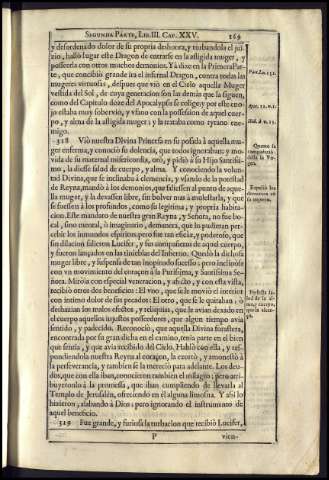 SEGUNDA PARTE, LIB. III. CAP. XXV. 169
y desordenado dolor de su propria deshonra, y turbandola el jui-
zio, halló lugar este Dragon de entrarse en la afligida muger, y
posseerla con otros muchos demonios. Yà dixe en la Primera Par-
te, que concibió grande ira el infernal Dragon, contra todas las
mugeres virtuosas, despues que viò en el Cielo aquella Muger
vestida del Sol, de cuya generacion son las demàs que la siguen,
como del Capitulo doze del Apocalypsi se colige: y por este eno-
jo estaba muy sobervio, y vfano con la possession de aquel cuer-
po, y alma de la afligida muger; y la trataba como tyrano ene-
migo.
318 Viò nuestra Divina Princesa en su posada à aquella mu-
ger enferma, y conociò su dolencia, que todos ignoraban: y mo-
vida de su maternal misericordia, orò, y pidió à su Hijo Santissi-
mo, la diesse salud de cuerpo, y alma. Y conociendo la volun-
tad Divina, que se inclinaba à clemencia; y vsando de la potestad
de Reyna, mandò à los demonios, que saliessen al punto de aque-
lla muger, y la dexassen libre, sin bolver mas à molestarla, y que
se fuessen à los profundos, como su legitima, y propria habita-
cion. Este mandato de nuestra gran Reyna, y Señora, no fue bo-
cal, sino mental, ò imaginario, de manera, que lo pudieran per-
cebir los inmundos espiritus, pero fue tan eficàz, y poderoso, que
sin dilacion salieron Lucifer, y sus compañeros de aquel cuerpo,
y fueron lançados en las tinieblas del Infierno. Quedò la dichosa
muger libre, y suspensa de tan inopinado sucesso; pero inclinòse
con vn movimiento del coraçon à la Purissima, y Santissima Se-
ñora. Miròla con especial veneracion, y afecto, y con esta vista,
recibió otros dos beneficios: El vno, que se le moviò el interior
con intimo dolor de sus pecados: El otro, que se le quitaban, ò
deshazian los malos efectos, y reliquias, que le avian dexado en
el cuerpo aquellos injustos posseedores, que algun tiempo avia
sentido, y padecido. Reconociò, que aquella Divina forastera,
encontrada por su gran dicha en el camino, tenia parte en el bien
que sentia, y que avia recibido del Cielo. Hablò con ella, y res-
pondiendola nuestra Reyna al coraçon, la exortò, y amonestò à
la perseverancia, y tambien se la mereciò para adelante. Los deu-
dos, que con ella iban, conocieron tambien el milagro; pero atri-
buyeronlo à la promessa, que iban cumpliendo de llevarla al
Templo de Jerusalèn, ofreciendo en èl alguna limosna. Y assi lo
hizieron, alabando à Dios; pero ignorando el instrumento de
aquel beneficio.
319 Fue grande, y furiosa la turbacion que recibiò Lucifer,
P
vien-
Par. 1. n. 132.
Apoc. 12. v. 1.
Ibid. à v. 15.